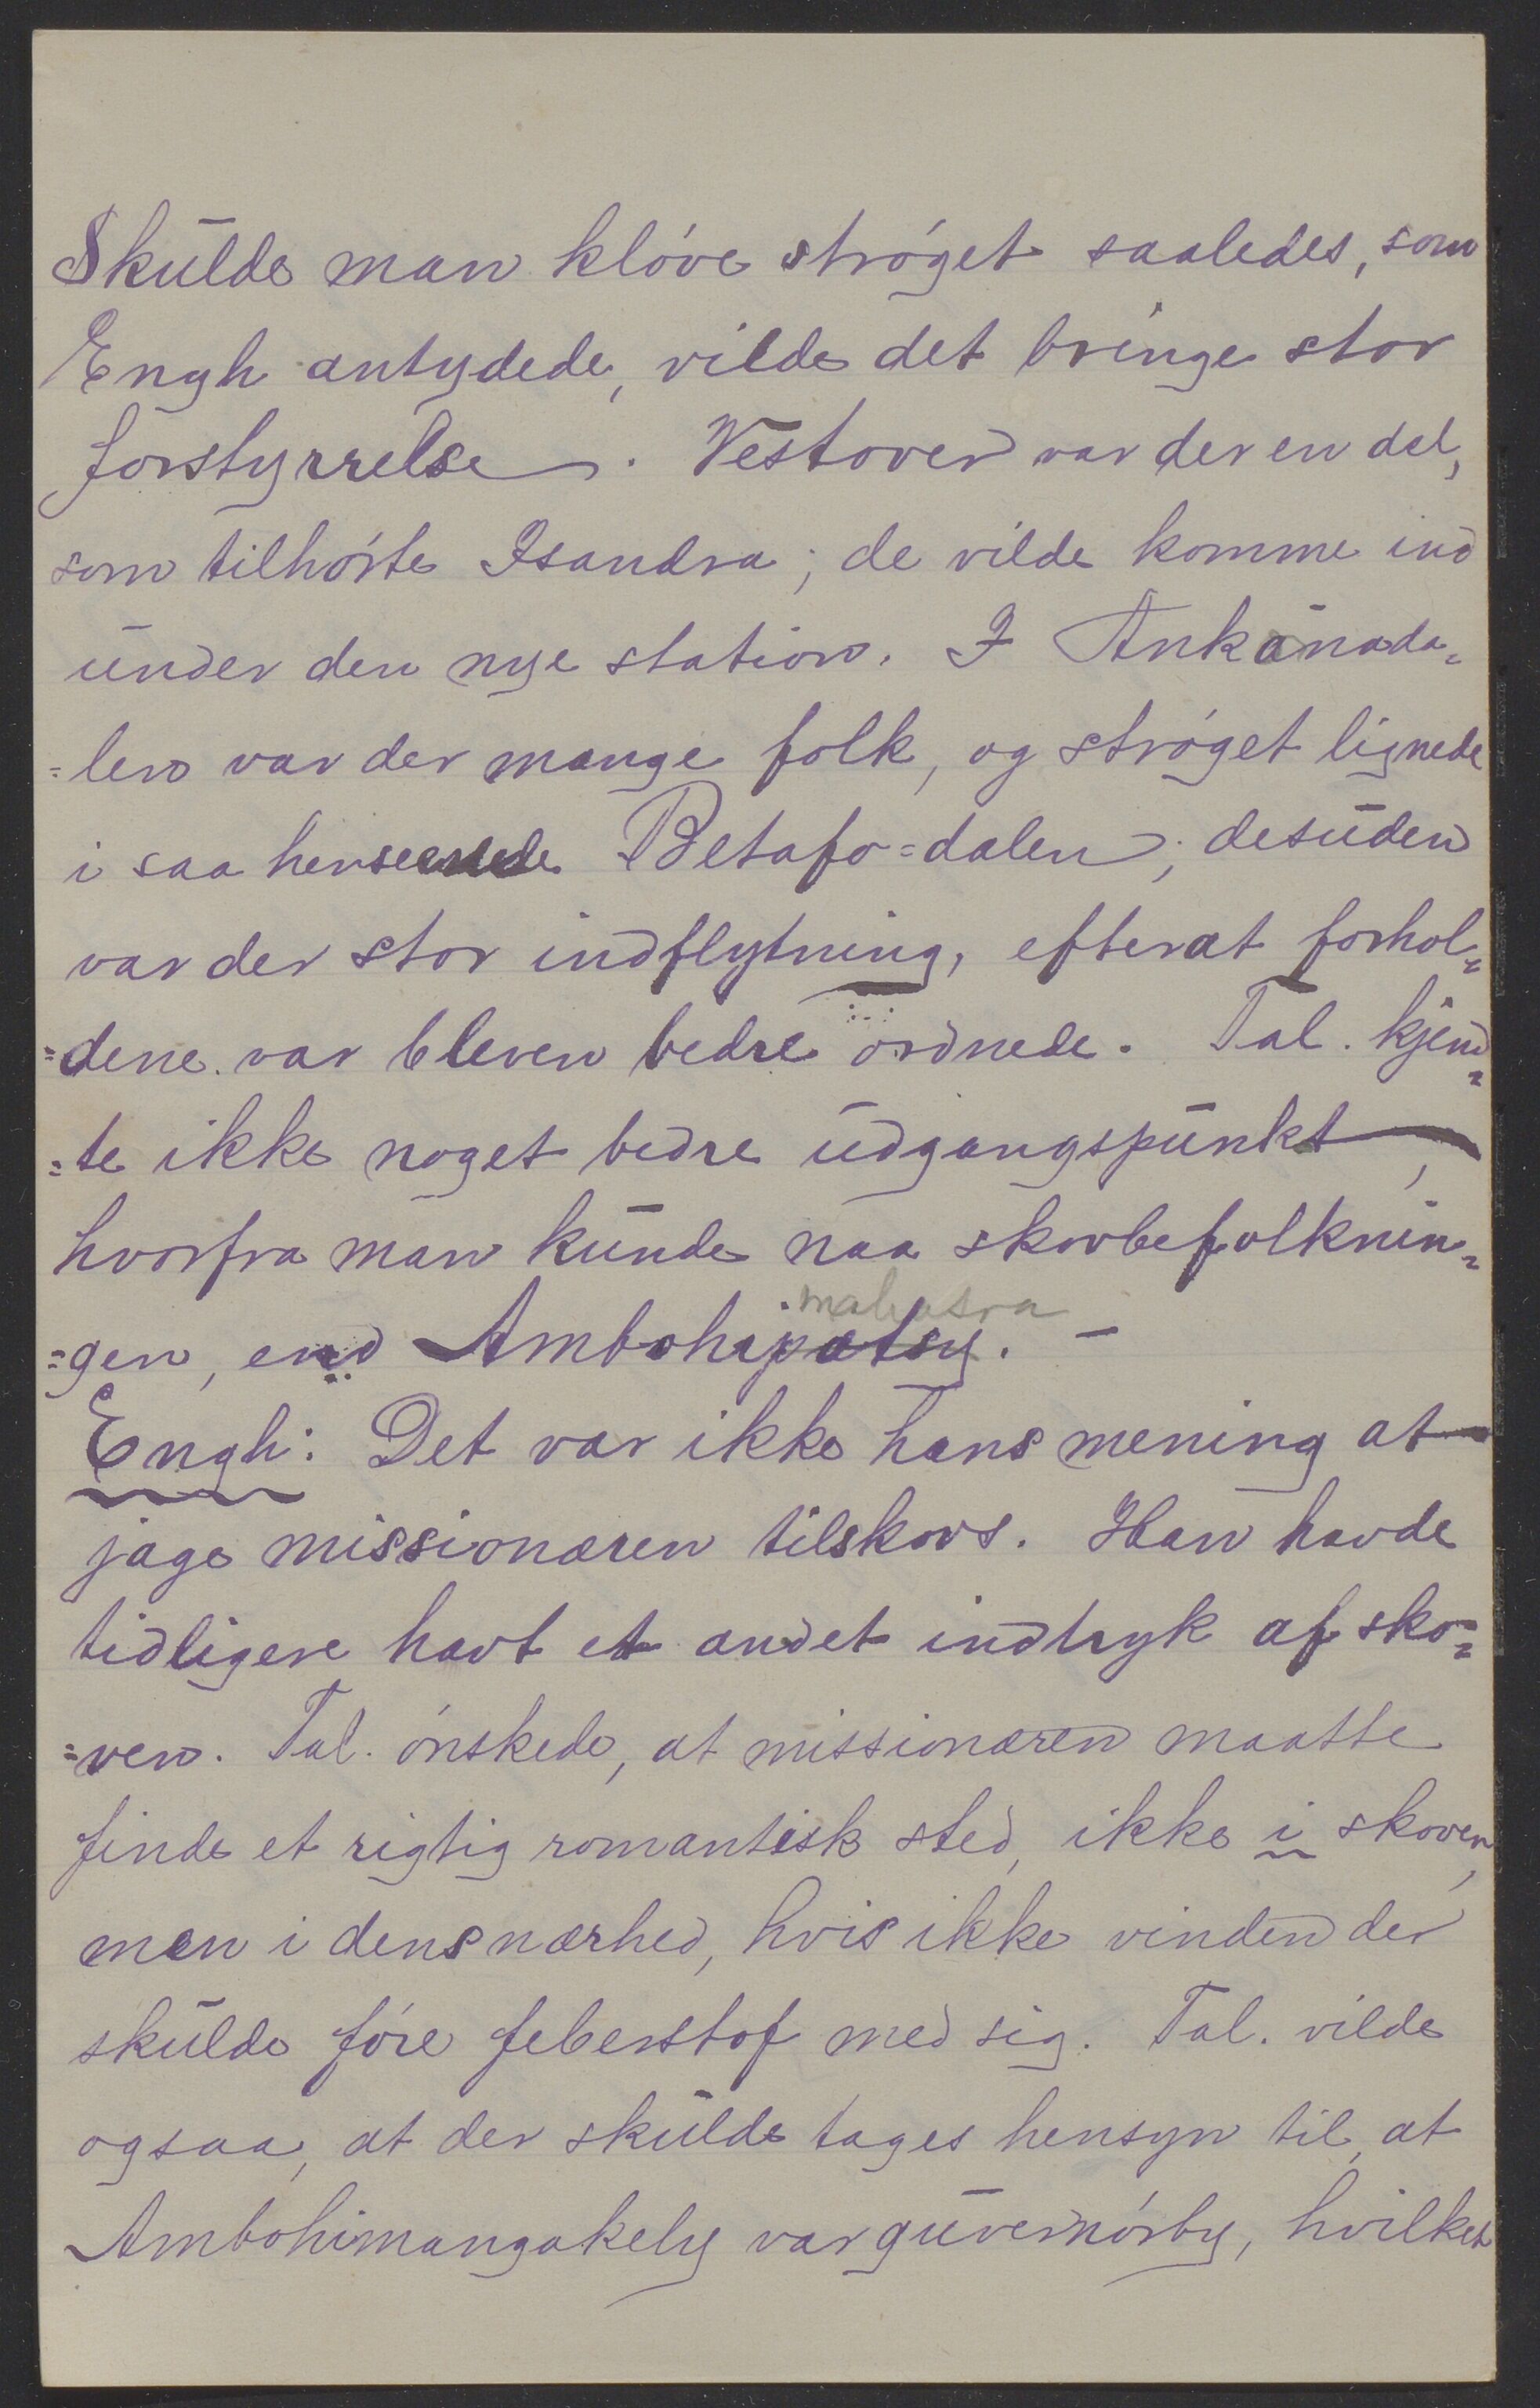 Skulde man kløve strøget saaledes, som
Engh antydede, vilde det bringe stor
forstyrrelse. Vestover var der en del,
som tilhørte Isandra; de vilde komme ind
under den nye station. I Ankonada=
=len var der mange folk, og strøget lignede
i saa henseende Betafo=dalen; desuden
var der stor indflytning, efterat forhol=
=dene var bleven bedre ordnede. Tal. kjend=
=te ikke noget bedre udgangspunkt,
hvorfra man kunde naa skovbefolknin=
mahasoa
=gen, end Ambohipotsy. —
Engh: Det var ikke hans mening at
jage missionæren tilskovs. Han havde
tidligere havt et andet indtryk af sko=
=ven. Tal. ønskede, at missionæren maatte
finde et rigtig romantisk sted, ikke i skoven,
men i dens nærhed, hvis ikke vinden der
skulde føre feberstof med sig. Tal. vilde
ogsaa, at der skulde tages hensyn til, at
Ambohimangakely var guvernørby, hvilket